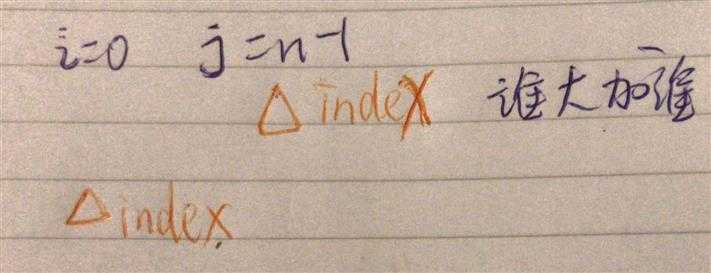 i=0 j=n-1
△index 谁大加谁
△index